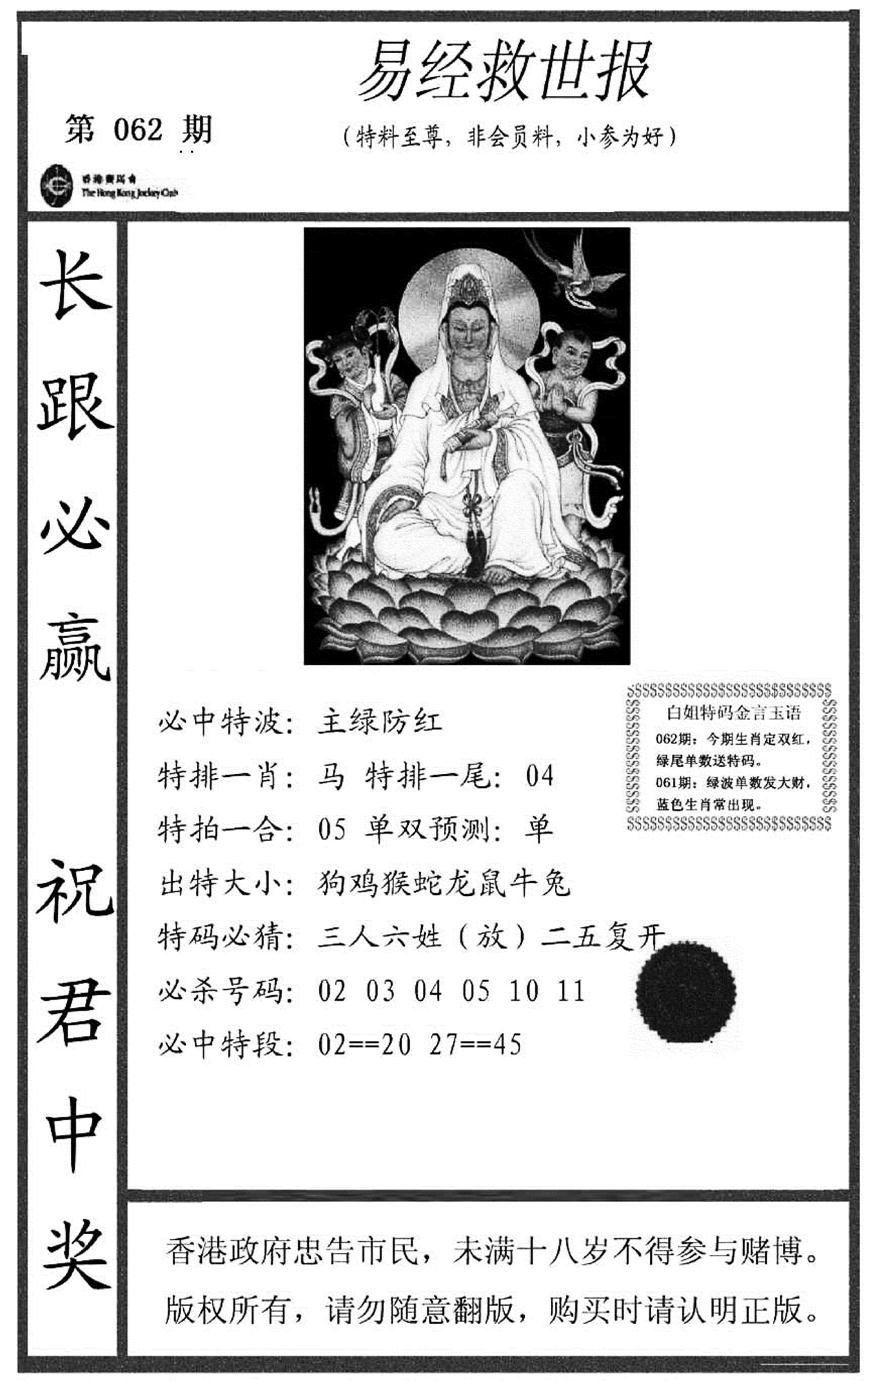 易经救世报
第 062 期
（特料至尊，非会员料，小参为好）
香港賽馬會
The Hong Kong Jockey Club
长跟必赢
祝君中奖
必中特波：主绿防红
特排一肖：马 特排一尾：04
特拍一合：05 单双预测：单
出特大小：狗鸡猴蛇龙鼠牛兔
特码必猜：三人六姓（放）二五复开
必杀号码：02 03 04 05 10 11
必中特段：02==20 27==45
白姐特码金言玉语
062期：今期生肖定双红，
绿尾单数送特码。
061期：绿波单数发大财，
蓝色生肖常出现。
香港政府忠告市民，未满十八岁不得参与赌博。
版权所有，请勿随意翻版，购买时请认明正版。